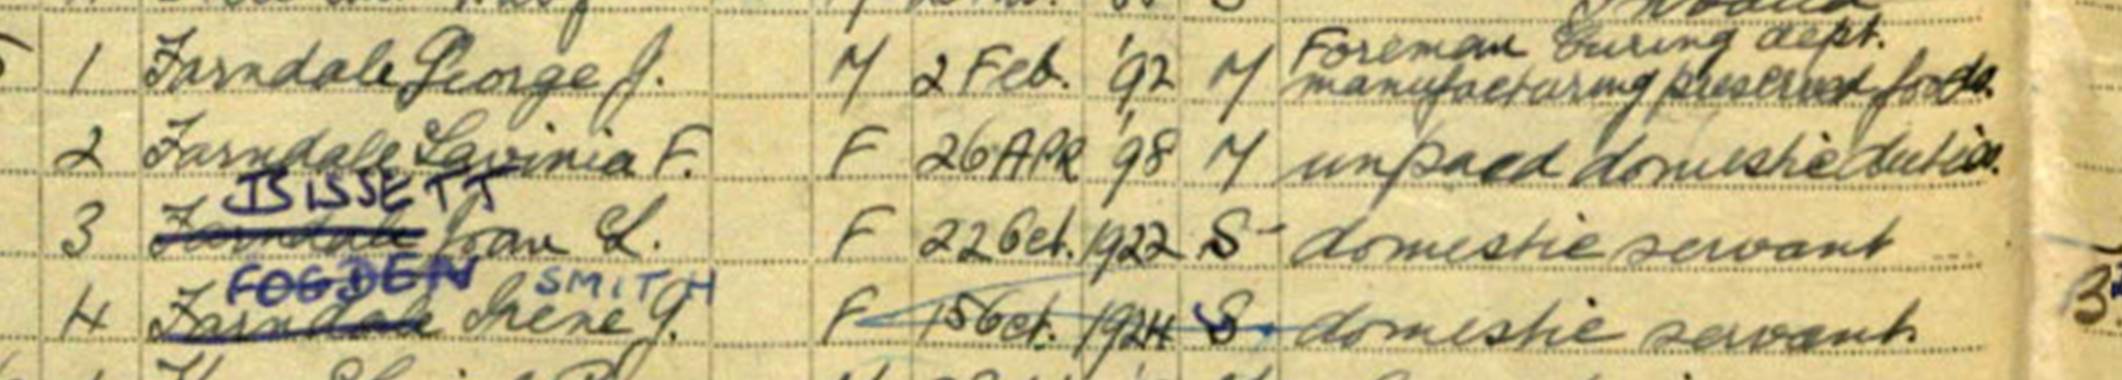 Invalid
1 Farndale George J. M 2 Feb. '92 M Foreman Curing dept.
manufacturing preserved foods.
2 Farndale Lavinia F. F 26 APR '98 M unpaid domestic duties.
BISSETT
3 Farndale Joan L. F 22 Oct. 1922 S - domestic servant
FOGDEN SMITH
4 Farndale Irene G. F 15 Oct. 1924 S domestic servant.